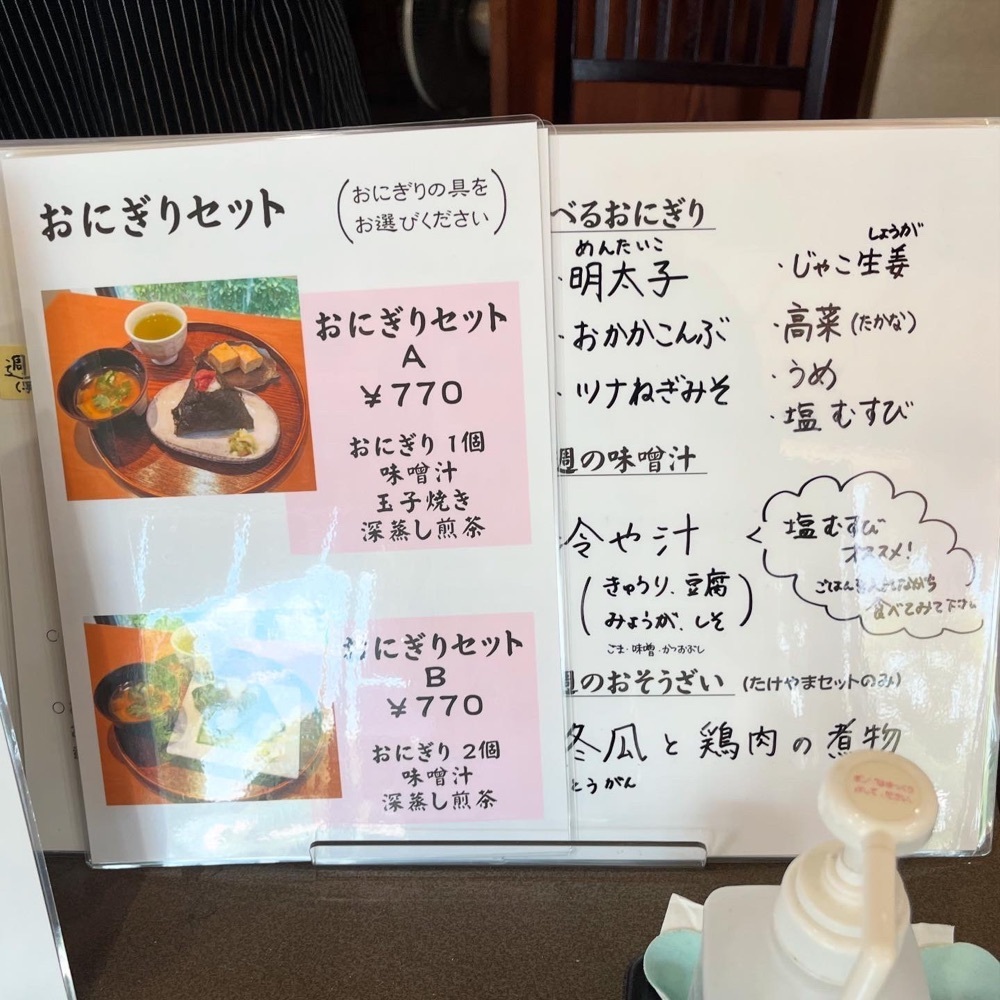 おにぎりセット
（おにぎりの具を
お選びください）
おにぎりセット
A
￥770
おにぎり 1個
味噌汁
玉子焼き
深蒸し煎茶
おにぎりセット
B
￥770
おにぎり 2個
味噌汁
深蒸し煎茶
週
べるおにぎり
めんたいこ
・明太子
・おかかこんぶ
・ツナねぎみそ
しょうが
・じゃこ生姜
・高菜（たかな）
・うめ
・塩むすび
週の味噌汁
冷や汁
（きゅうり、豆腐
みょうが、しそ）
ごま・味噌・かつおぶし
塩むすび
オススメ！
食べてみて下さい
週のおそうざい（たけやまセットのみ）
冬瓜と鶏肉の煮物
とうがん